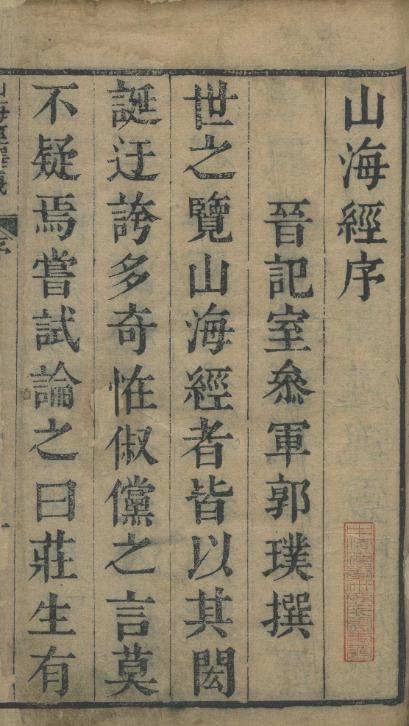 山海經序
晉記室叅軍郭璞撰
世之覽山海經者皆以其閎
誕迂誇多奇恠俶儻之言莫
不疑焉嘗試論之曰莊生有
山海經釋義
序